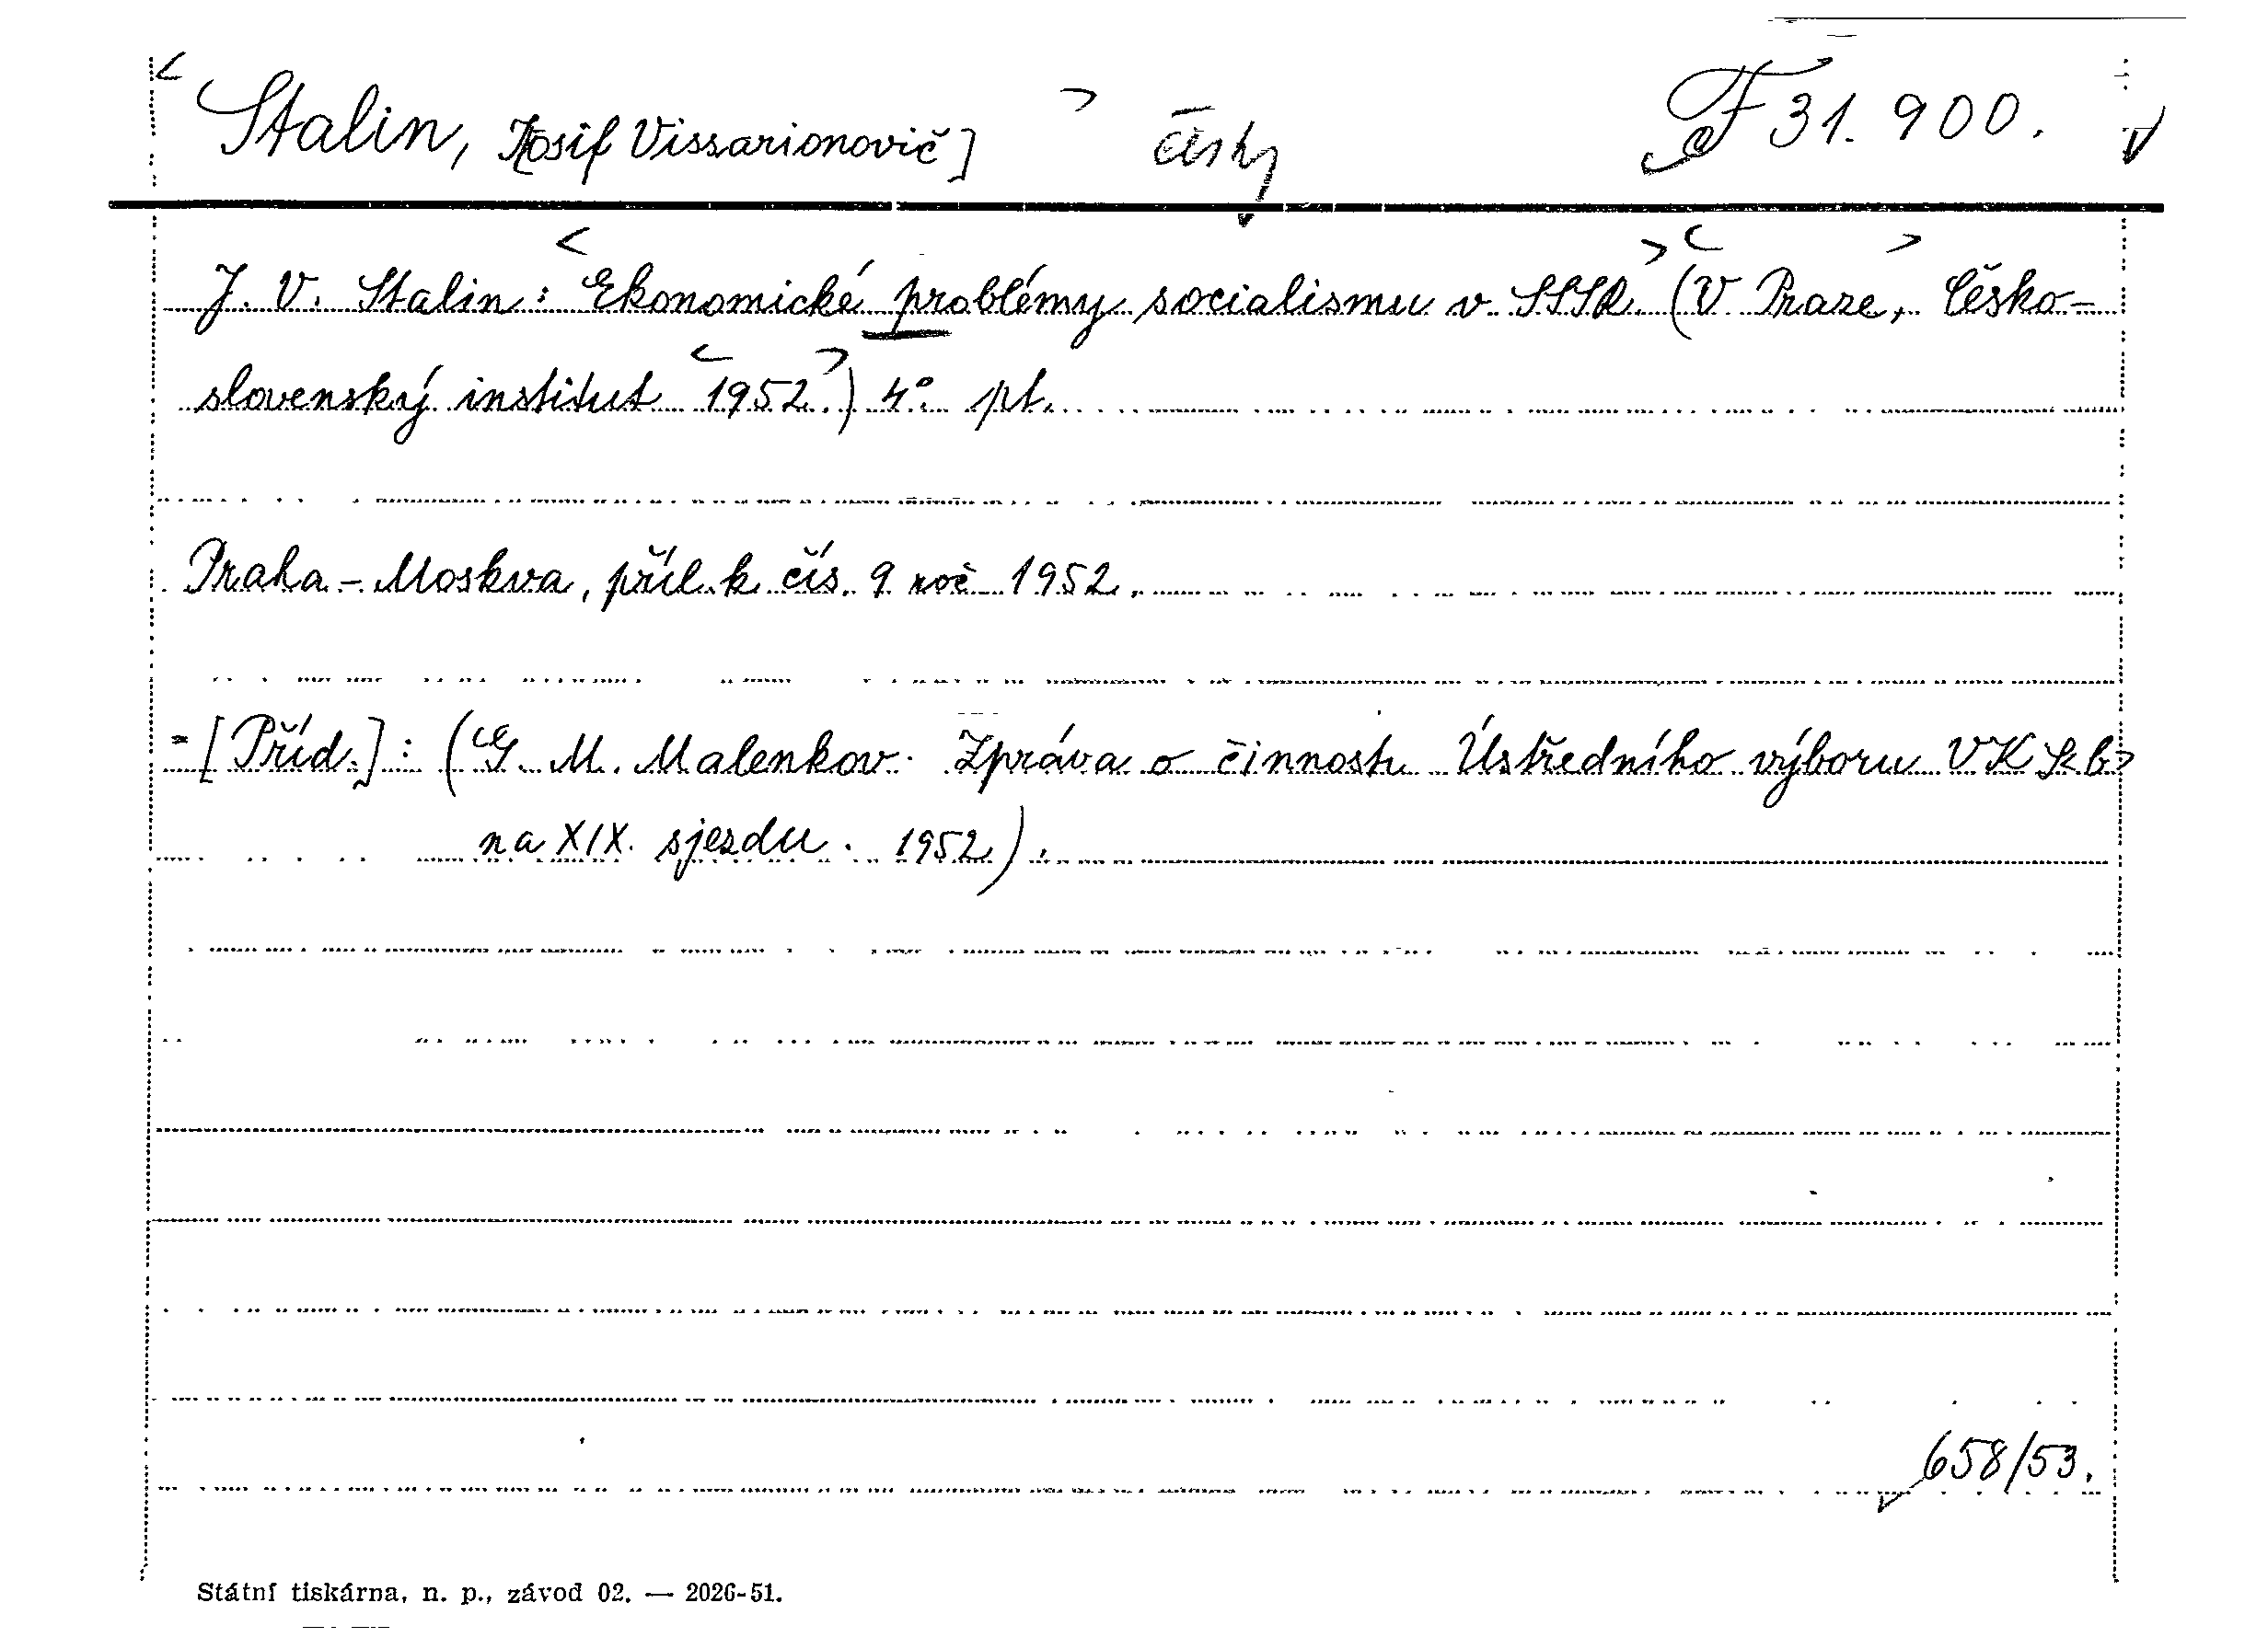 Stalin, [Josif Vissarionovič] česky F 31.900.
J. V. Stalin: Ekonomické problémy socialismu v SSSR. (V Praze, Česko-
slovenský institut 1952.) 4° pt.
Praha - Moskva, příl. k čís. 9 roč 1952.
- [Příd.] : (G. M. Malenkov. Zpráva o činnosti Ústředního výboru VKSb
na XIX. sjezdu. 1952).
658/53.
Státní tiskárna, n. p., závod 02. — 2026-51.